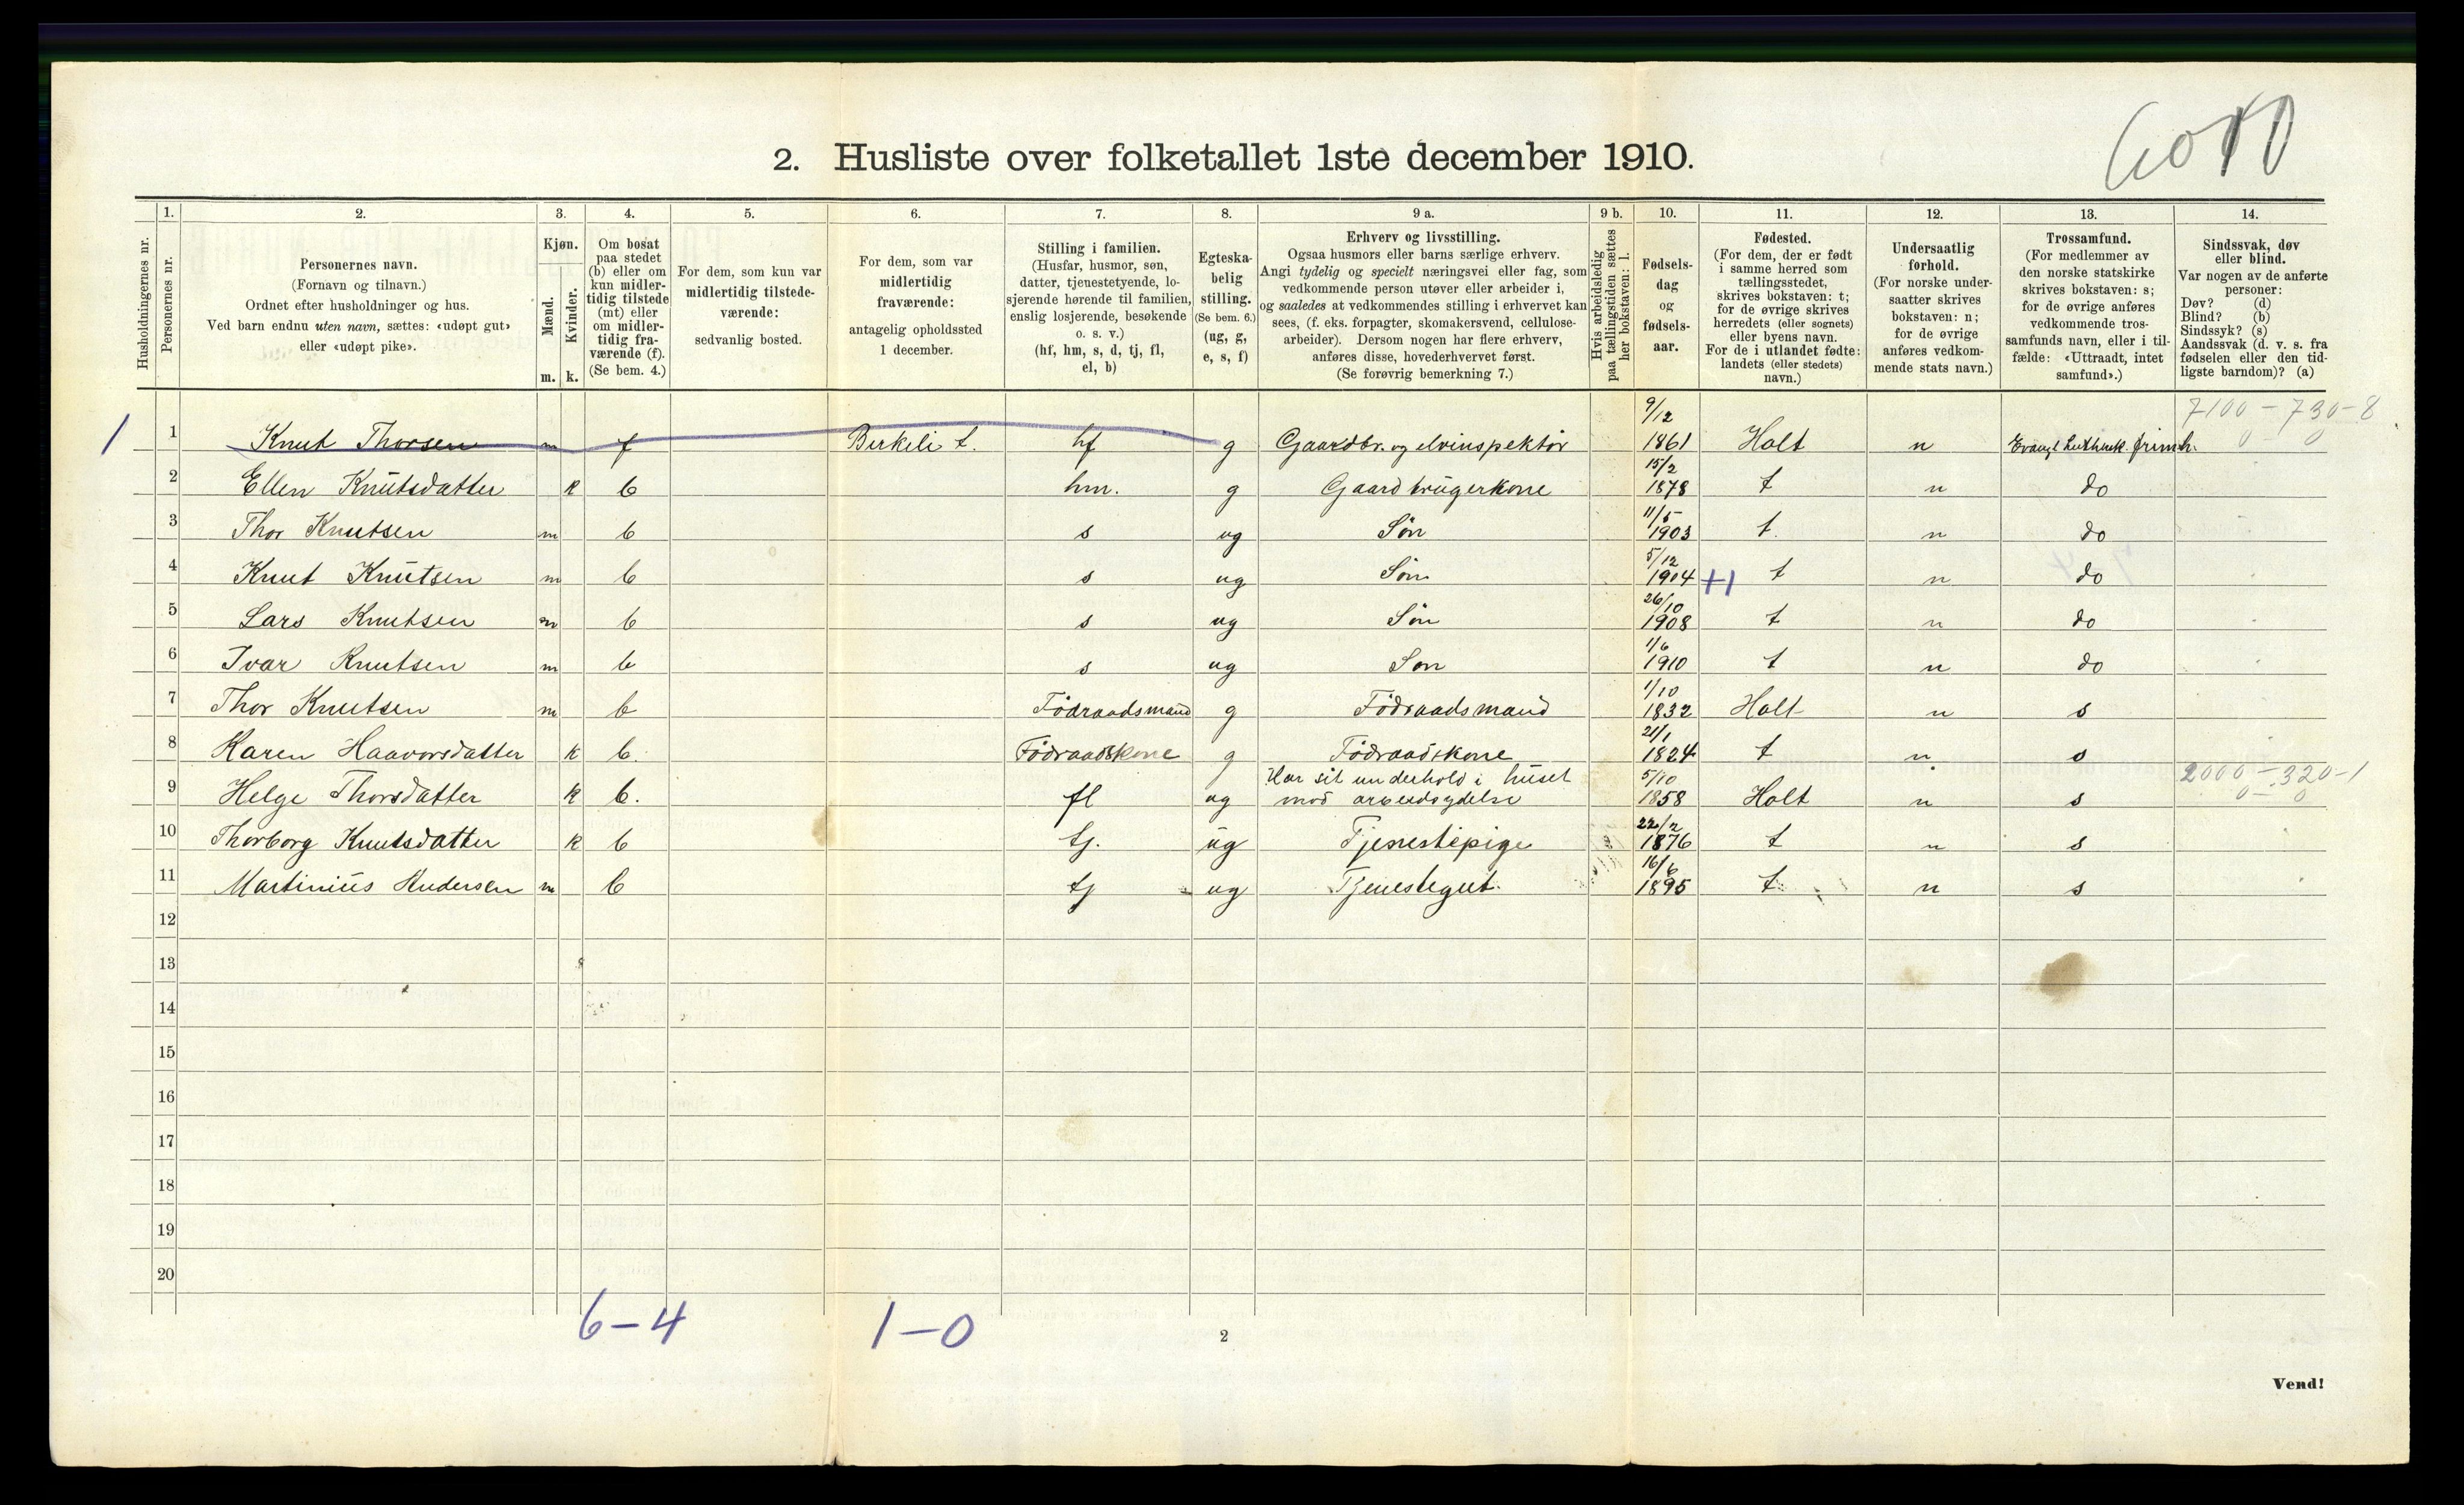 6010
2. Husliste over folketallet 1ste december 1910.
Husholdningernes nr.
1.
Personernes nr.
2.
Personernes navn.
(Fornavn og tilnavn.)
Ordnet efter husholdninger og hus.
Ved barn endnu uten navn, sættes: «udøpt gut»
eller «udøpt pike».
3.
Kjøn.
Mænd.
Kvinder.
m. k.
4.
Om bosat
paa stedet
(b) eller om
kun midler-
tidig tilstede
(mt) eller
om midler-
tidig fra-
værende (f).
(Se bem. 4.)
5.
For dem, som kun var
midlertidig tilstede-
værende:
sedvanlig bosted.
6.
For dem, som var
midlertidig
fraværende:
antagelig opholdssted
1 december.
7.
Stilling i familien.
(Husfar, husmor, søn,
datter, tjenestetyende, lo-
sjerende hørende til familien,
enslig losjerende, besøkende
o. s. v.)
(hf, hm, s, d, tj, fl,
el, b)
8.
Egteska-
belig
stilling.
(Se bem. 6.)
(ug, g,
e, s, f)
9 a.
Erhverv og livsstilling.
Ogsaa husmors eller barns særlige erhverv.
Angi tydelig og specielt næringsvei eller fag, som
vedkommende person utøver eller arbeider i,
og saaledes at vedkommendes stilling i erhvervet kan
sees, (f. eks. forpagter, skomakersvend, cellulose-
arbeider). Dersom nogen har flere erhverv,
anføres disse, hovederhvervet først.
(Se forøvrig bemerkning 7.)
9 b.
Hvis arbeidsledig
paa tællingstiden sættes
her bokstaven: l.
10.
Fødsels-
dag
og
fødsels-
aar.
11.
Fødested.
(For dem, der er født
i samme herred som
tællingsstedet,
skrives bokstaven: t;
for de øvrige skrives
herredets (eller sognets)
eller byens navn.
For de i utlandet fødte:
landets (eller stedets)
navn.)
12.
Undersaatlig
forhold.
(For norske under-
saatter skrives
bokstaven: n;
for de øvrige
anføres vedkom-
mende stats navn.)
13.
Trossamfund.
(For medlemmer av
den norske statskirke
skrives bokstaven: s;
for de øvrige anføres
vedkommende tros-
samfunds navn, eller i til-
fælde: «Uttraadt, intet
samfund».)
14.
Sindssvak, døv
eller blind.
Var nogen av de anførte
personer:
Døv? (d)
Blind? (b)
Sindssyk? (s)
Aandssvak (d. v. s. fra
fødselen eller den tid-
ligste barndom)? (a)
7100 - 730-8
0 - 0
1 1 Knut Thorsen m f Birkeli t. hf g Gaardbr. og elvinspektör 9/12 1861 Holt n Evangl Luthersk. frimh.
2 Ellen Knutsdatter k b hm. g Gaardbrugerkone 15/2 1878 t n do
3 Thor Knutsen m b s ug Sön 11/5 1903 t. n do
4 Knut Knutsen m b s ug Sön 5/12 1904 +1 t n do
5 Lars Knutsen m b s ug Sön 26/10 1908 t n do
6 Ivar Knutsen m b s ug Son 1/6 1910 t n do
7 Thor Knutsen m b Födraadsmand g Födraadsmand 1/10 1832 Holt n s
8 Karen Haavorsdatter k b. Födraadskone g Födraadskone 21/1 1824 t n s
2000 - 320-1
0 - 0
9 Helge Thorsdatter k b. fl ug Har sit underhold i huset mod arbeidsydelse 5/10 1858 Holt n s
10 Thorborg Knutsdatter k b tj. ug Tjenestepige 22/2 1876 t n s
11 Martinius Andersen m b tj ug Tjenestegut. 16/6 1895 t n s
12
13
14
15
16
17
18
19
20
6-4 1-0
2
Vend!